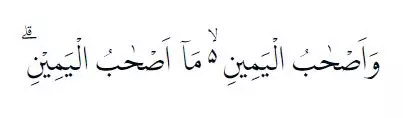 وَاَصْحٰبُ الْيَمِيْنِ ۙ۵ مَاۤ اَصْحٰبُ الْيَمِيْنِ ۗ